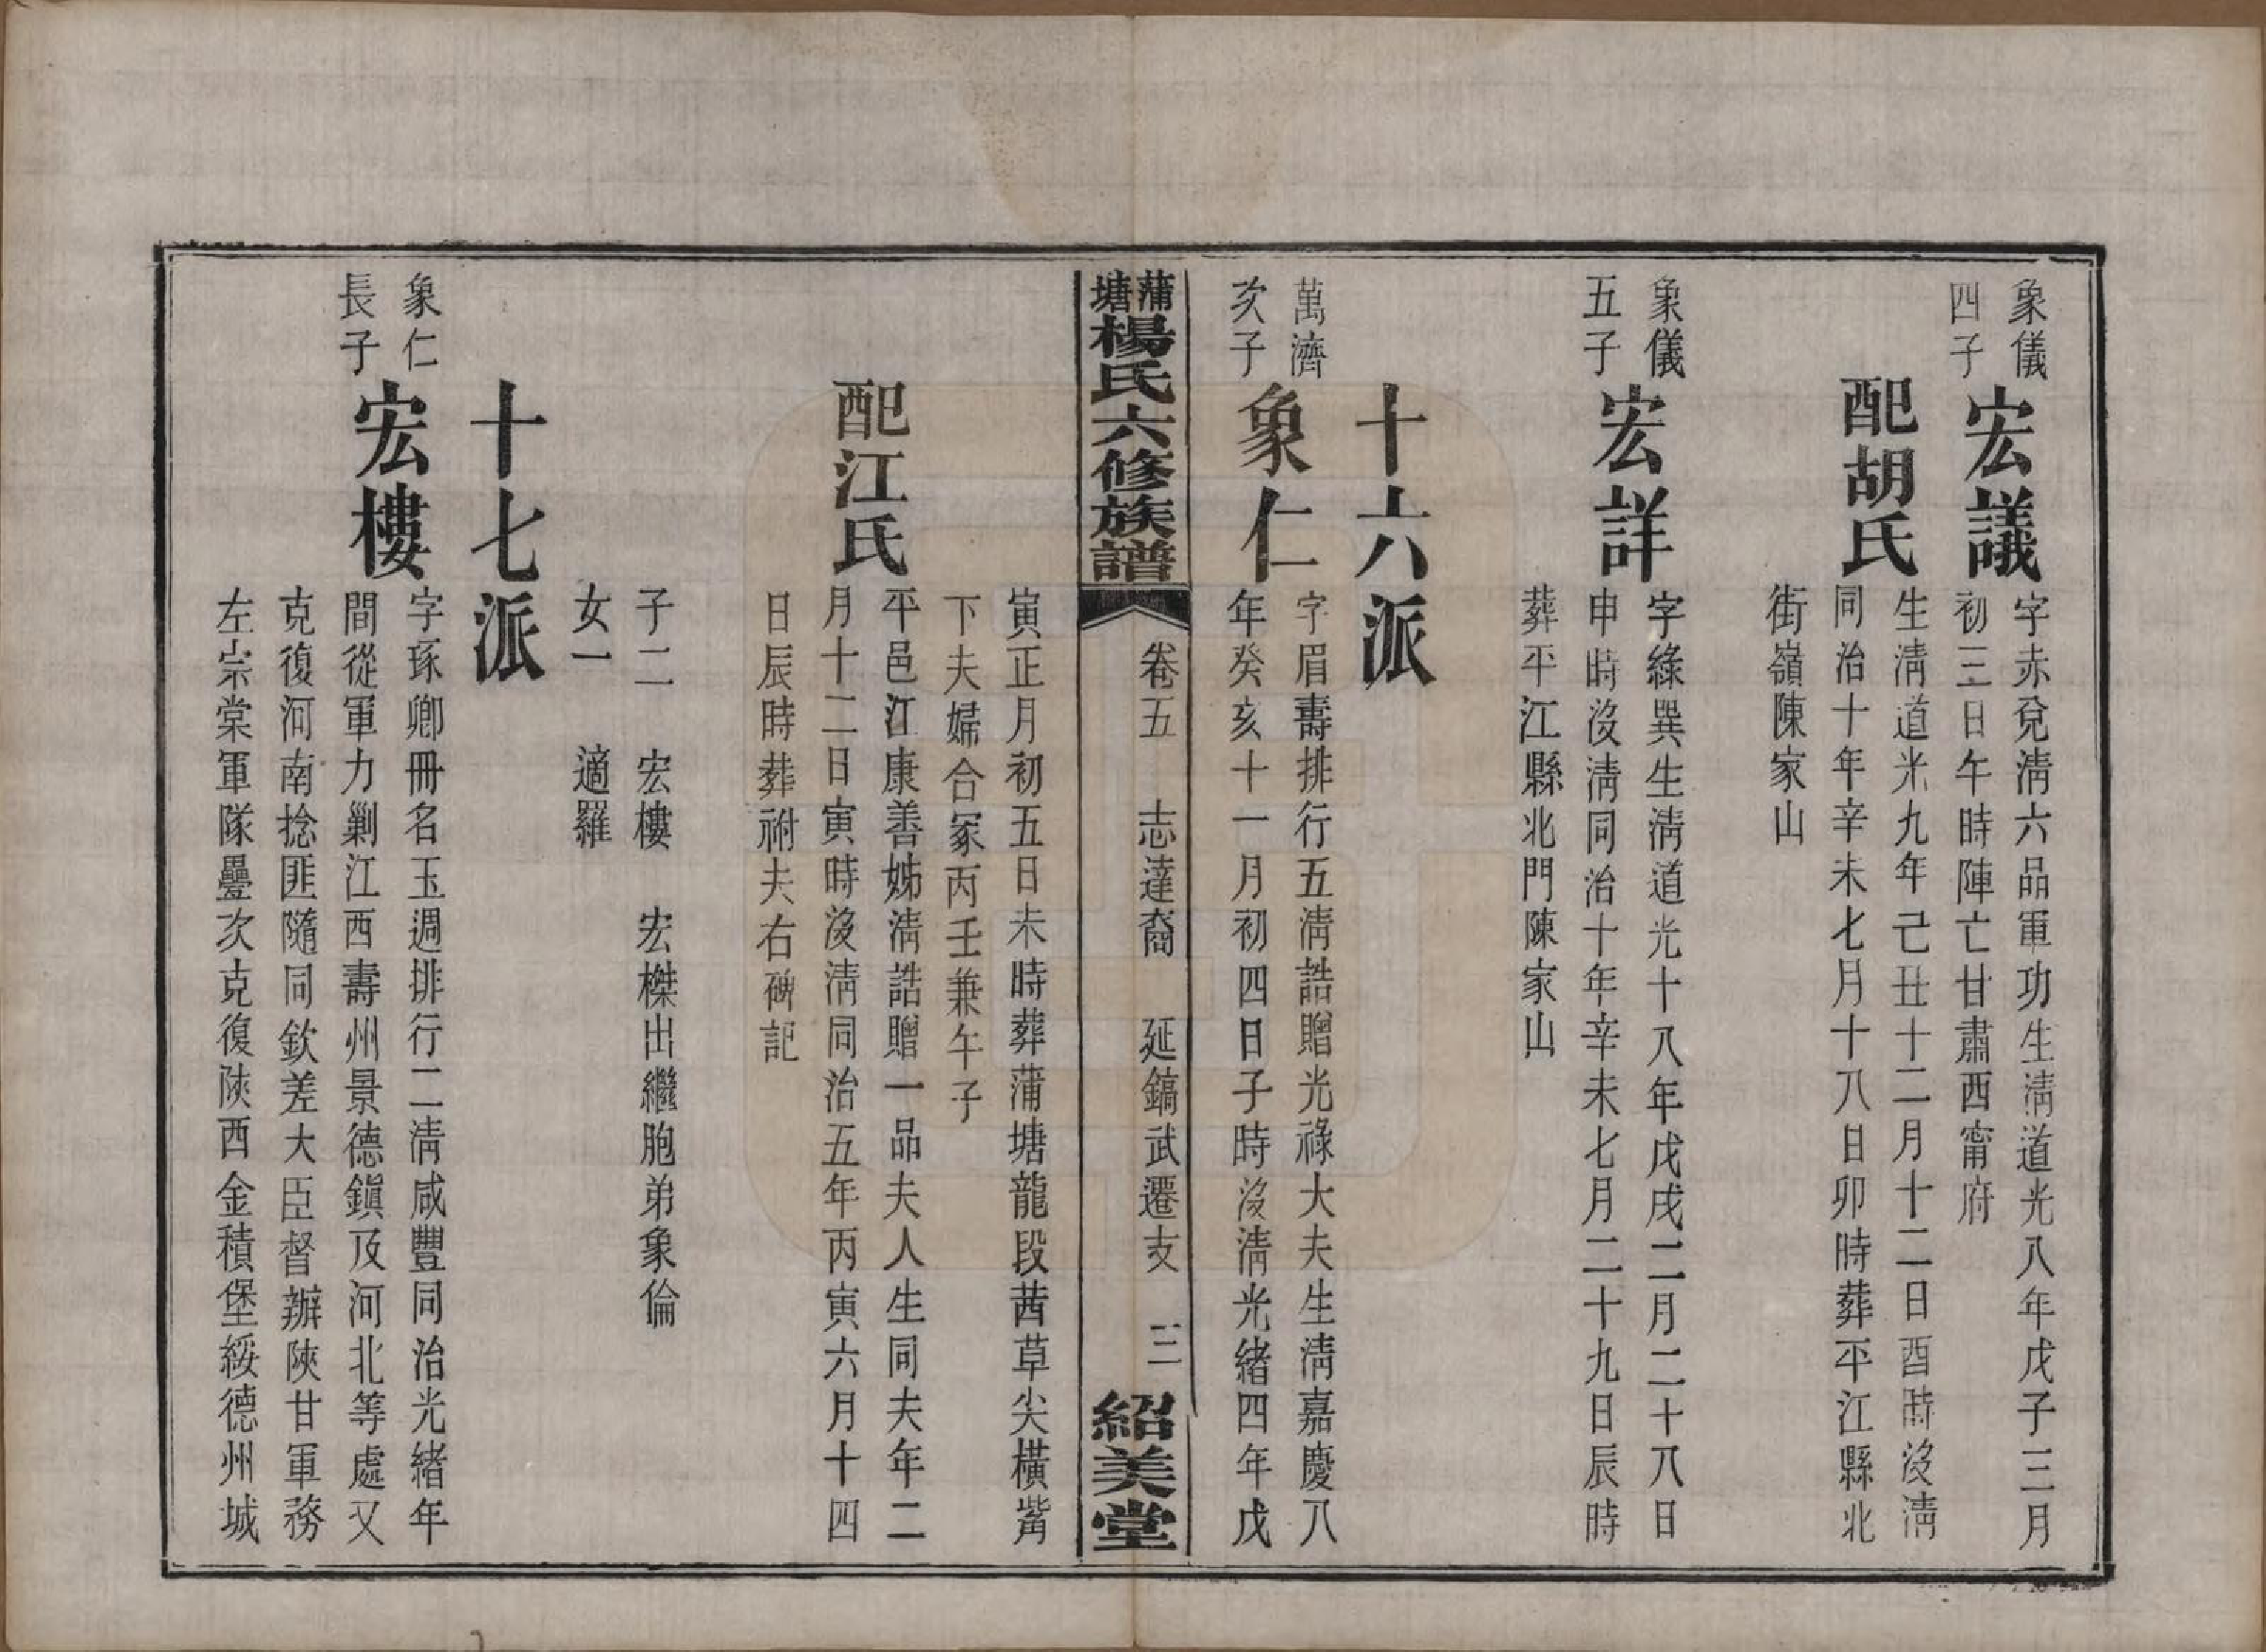 象儀
四子
宏議
字赤兌淸六品軍功生淸道光八年戊子三月
初三日午時陣亡甘肅西甯府
配胡氏
生淸道光九年己丑十二月十二日酉時沒淸
同治十年辛未七月十八日卯時葬平江縣北
街嶺陳家山
象儀
五子
宏詳
字綠異生淸道光十八年戊戌二月二十八日
申時沒淸同治十年辛未七月二十九日辰時
葬平江縣北門陳家山
十六派
萬濟
次子
象仁
字眉壽排行五淸誥贈光祿大夫生淸嘉慶八
年癸亥十一月初四日子時沒淸光緒四年戊
蒲塘楊氏六修族譜
卷五 志達裔 延鎬武遷支 三
紹美堂
寅正月初五日未時葬蒲塘龍段茜草尖橫嘴
下夫婦合冢丙壬兼午子
配江氏
平邑江康善姊淸誥贈一品夫人生同夫年二
月十二日寅時沒淸同治五年丙寅六月十四
日辰時葬祔夫右碑記
子二 宏樓 宏榤出繼胞弟象倫
女一 適羅
十七派
象仁
長子
宏樓
字琢卿冊名玉週排行二淸咸豐同治光緒年
間從軍力剿江西壽州景德鎭及河北等處又
克復河南捻匪隨同欽差大臣督辦陝甘軍務
左宗棠軍隊疊次克復陝西金積堡綏德州城